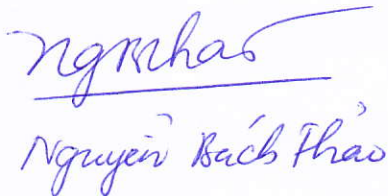 NgBthao
Nguyễn Bách Thảo